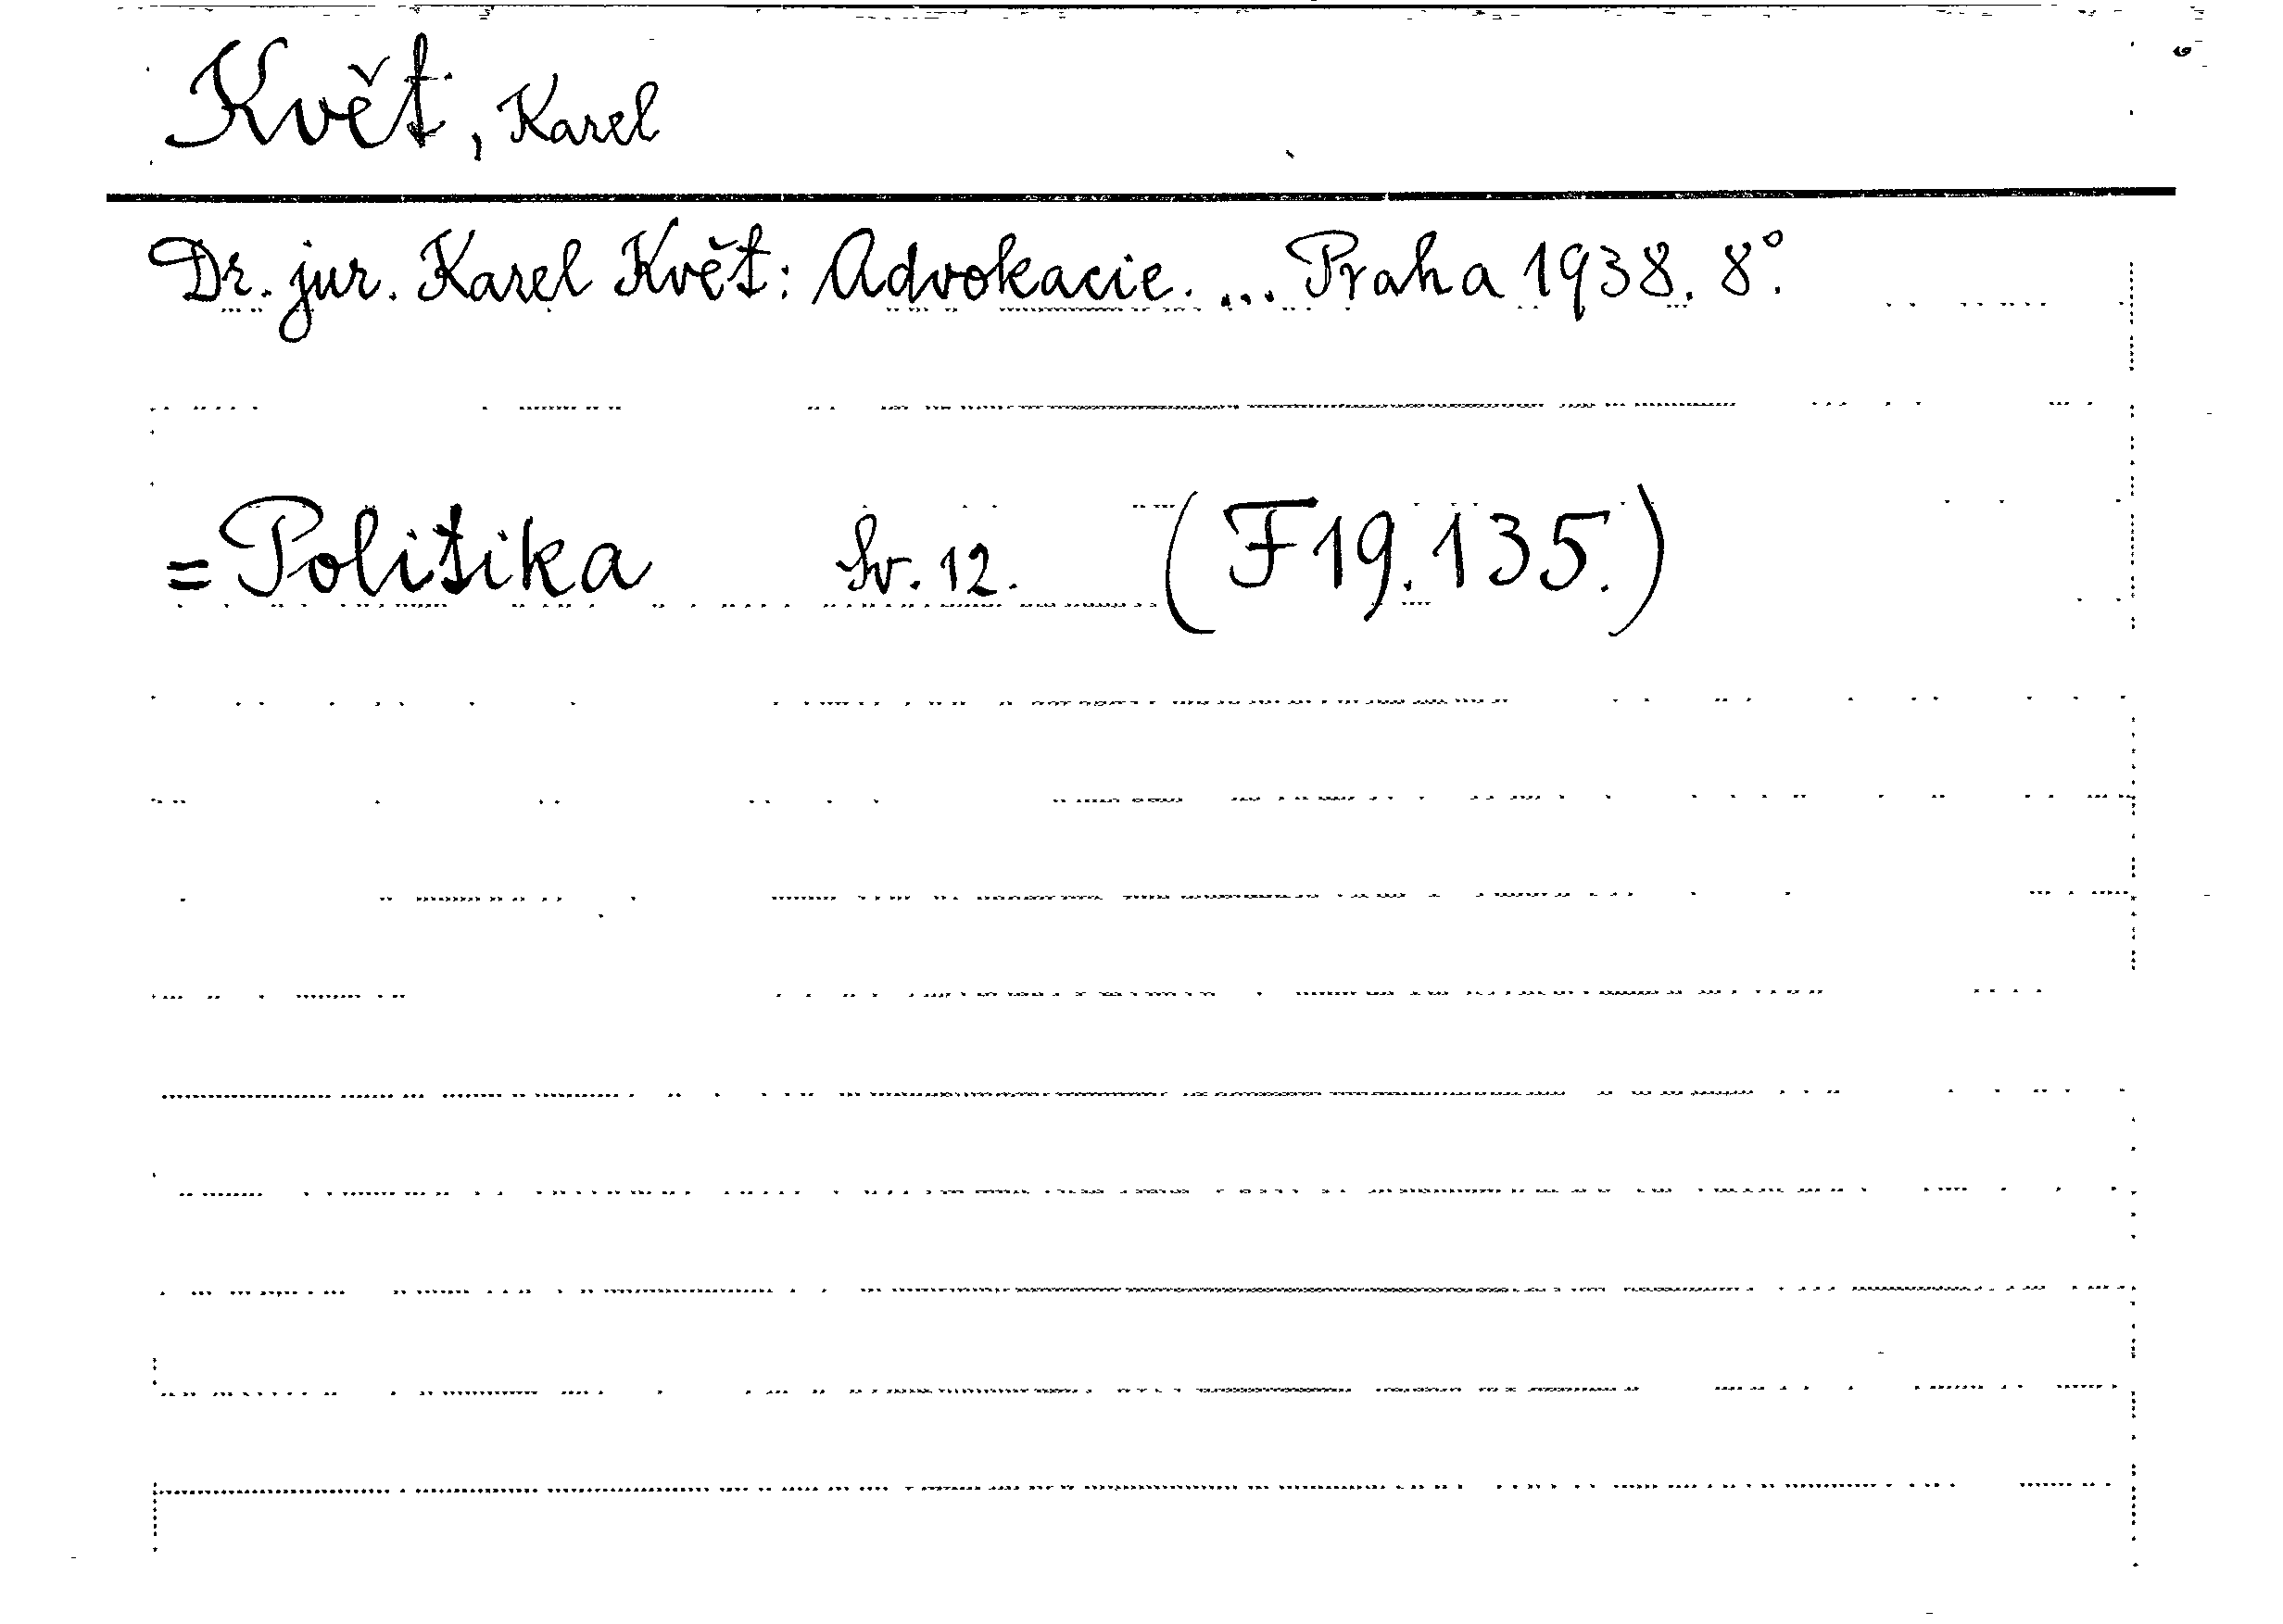 Květ, Karel
Dr. jur. Karel Květ: Advokacie. ... Praha 1938. 8°.
= Politika Sv. 12. (F19.135.)